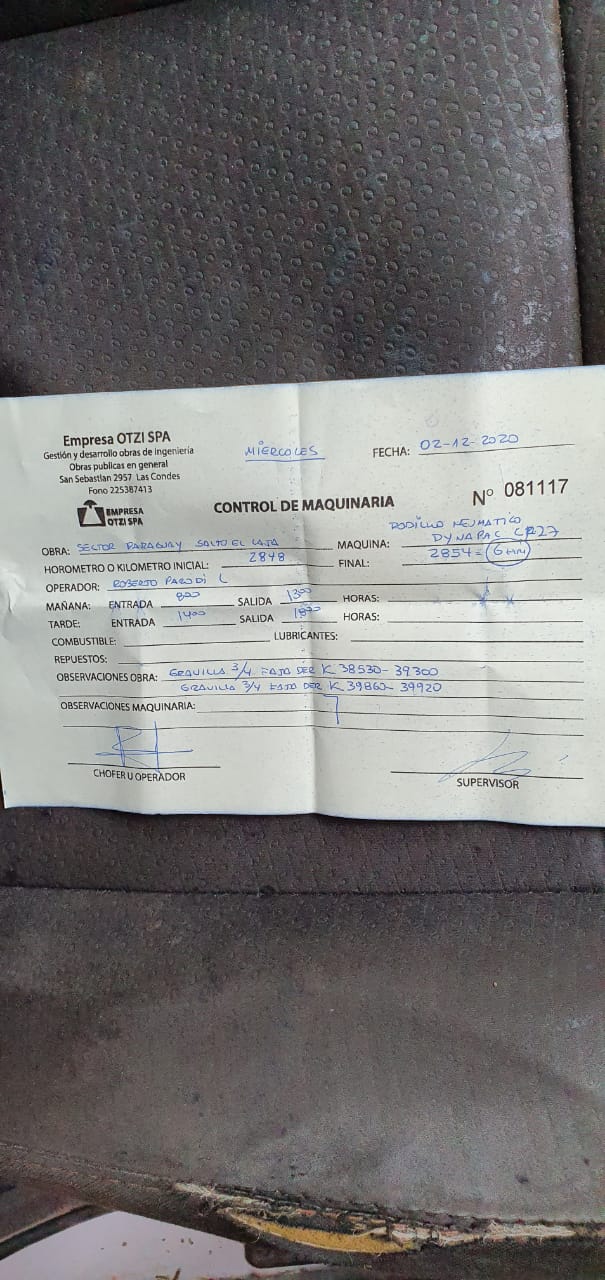 Empresa OTZI SPA
Gestión y desarrollo obras de Ingeniería
Obras publicas en general
San Sebastian 2957 Las Condes
Fono 225387413
EMPRESA
OTZI SPA
MIERCOLES
FECHA: 02-12-2020
CONTROL DE MAQUINARIA
N° 081117
OBRA: SECTOR PARAGUAY SALTO EL LAJA
MAQUINA: RODILLO NEUMATICO
DYNAPAC CP27
HOROMETRO O KILOMETRO INICIAL: 2848
FINAL: 2854 = 6 HRS
OPERADOR: ROBERTO PARODI L
MAÑANA: ENTRADA 800 SALIDA 1300 HORAS:
TARDE: ENTRADA 1400 SALIDA 1800 HORAS:
COMBUSTIBLE: LUBRICANTES:
REPUESTOS:
OBSERVACIONES OBRA: GRAVILLA 3/4 FAJA DER K 38530-39300
GRAVILLA 3/4 FAJA DER K 39860-39920
OBSERVACIONES MAQUINARIA:
CHOFER U OPERADOR
SUPERVISOR